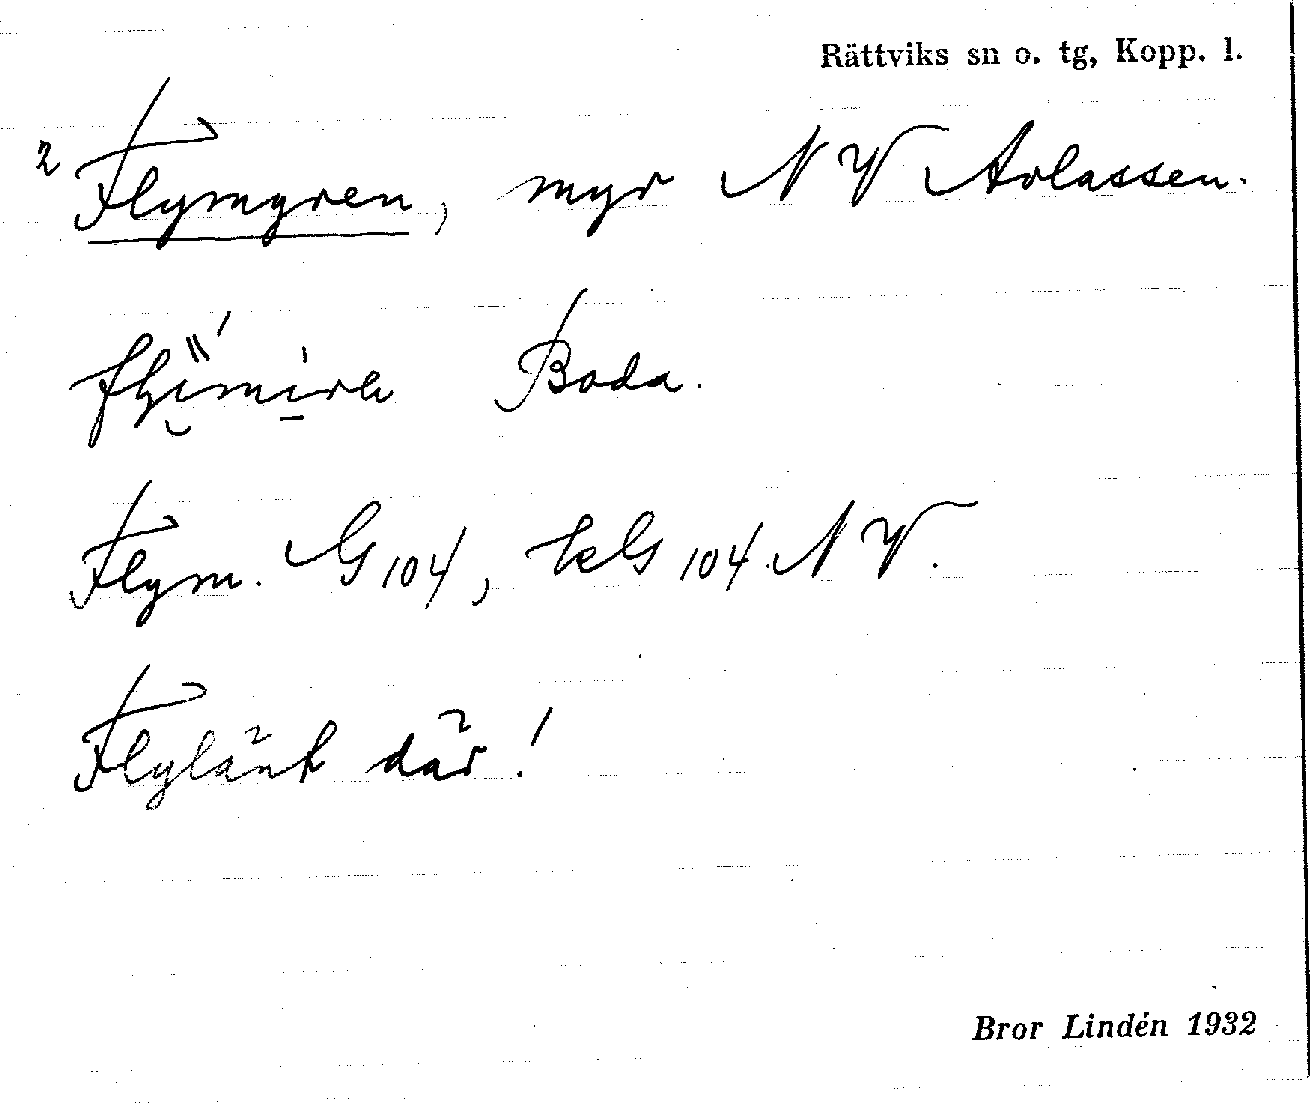 Rättviks sn o. tg, Kopp. l.
2 Flymyren, myr NV Arlassen.
Boda.
Flym. G 104, ekG 104 NV.
Flylänt där!
Bror Lindén 1932